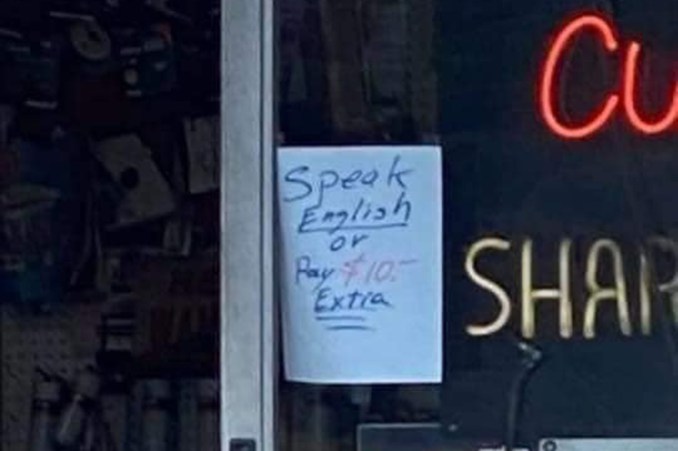 Speak
English
or
Pay $10.-
Extra
CU
SHAR